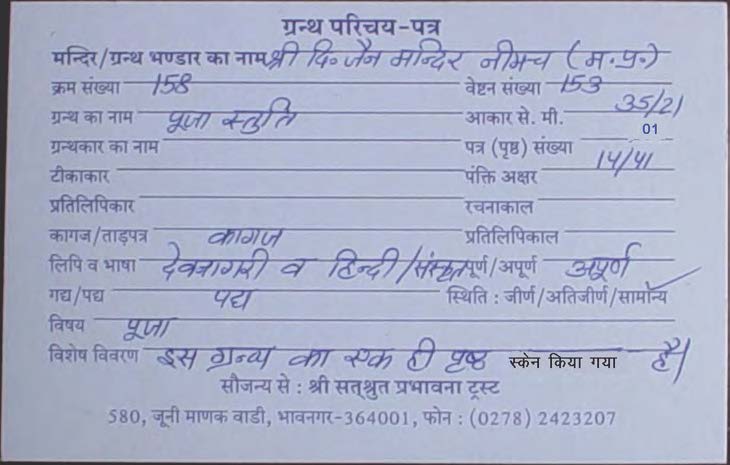 ग्रन्थ परिचय-पत्र
मन्दिर/ग्रन्थ भण्डार का नाम श्री दि॰ जैन मन्दिर नीमच (म.प्र.)
क्रम संख्या 158 वेष्टन संख्या 153
ग्रन्थ का नाम पूजा स्तुति आकार से. मी. 35/21
ग्रन्थकार का नाम पत्र (पृष्ठ) संख्या 01
टीकाकार पंक्ति अक्षर 14/41
प्रतिलिपिकार रचनाकाल
कागज/ताड़पत्र कागज प्रतिलिपिकाल
लिपि व भाषा देवनागरी व हिन्दी/संस्कृत पूर्ण/अपूर्ण अपूर्ण
गद्य/पद्य पद्य स्थिति : जीर्ण/अतिजीर्ण/सामान्य
विषय पूजा
विशेष विवरण इस ग्रन्थ का एक ही पृष्ठ स्केन किया गया है।
सौजन्य से : श्री सत्श्रुत प्रभावना ट्रस्ट
580, जूनी माणक वाडी, भावनगर-364001, फोन : (0278) 2423207